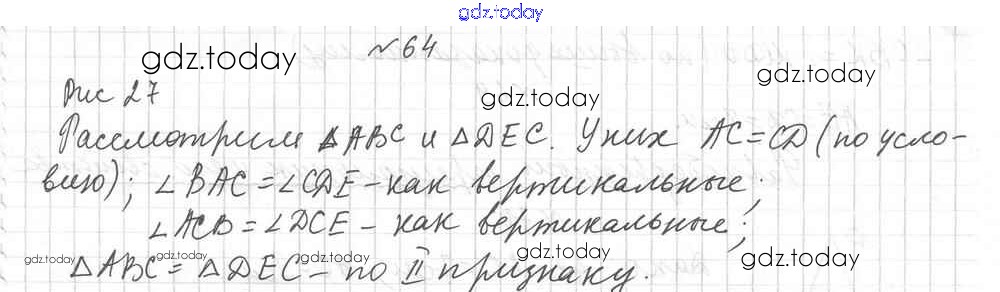 gdz.today
№ 64
gdz.today
Рис 27
gdz.today
Рассмотрим △ABC и △DEC. У них AC = CD (по усло-
вию); ∠BAC = ∠CDE – как вертикальные;
gdz.today
∠ACB = ∠DCE – как вертикальные;
gdz.today gdz.today gdz.today gdz.today
△ABC = △DEC – по II признаку.